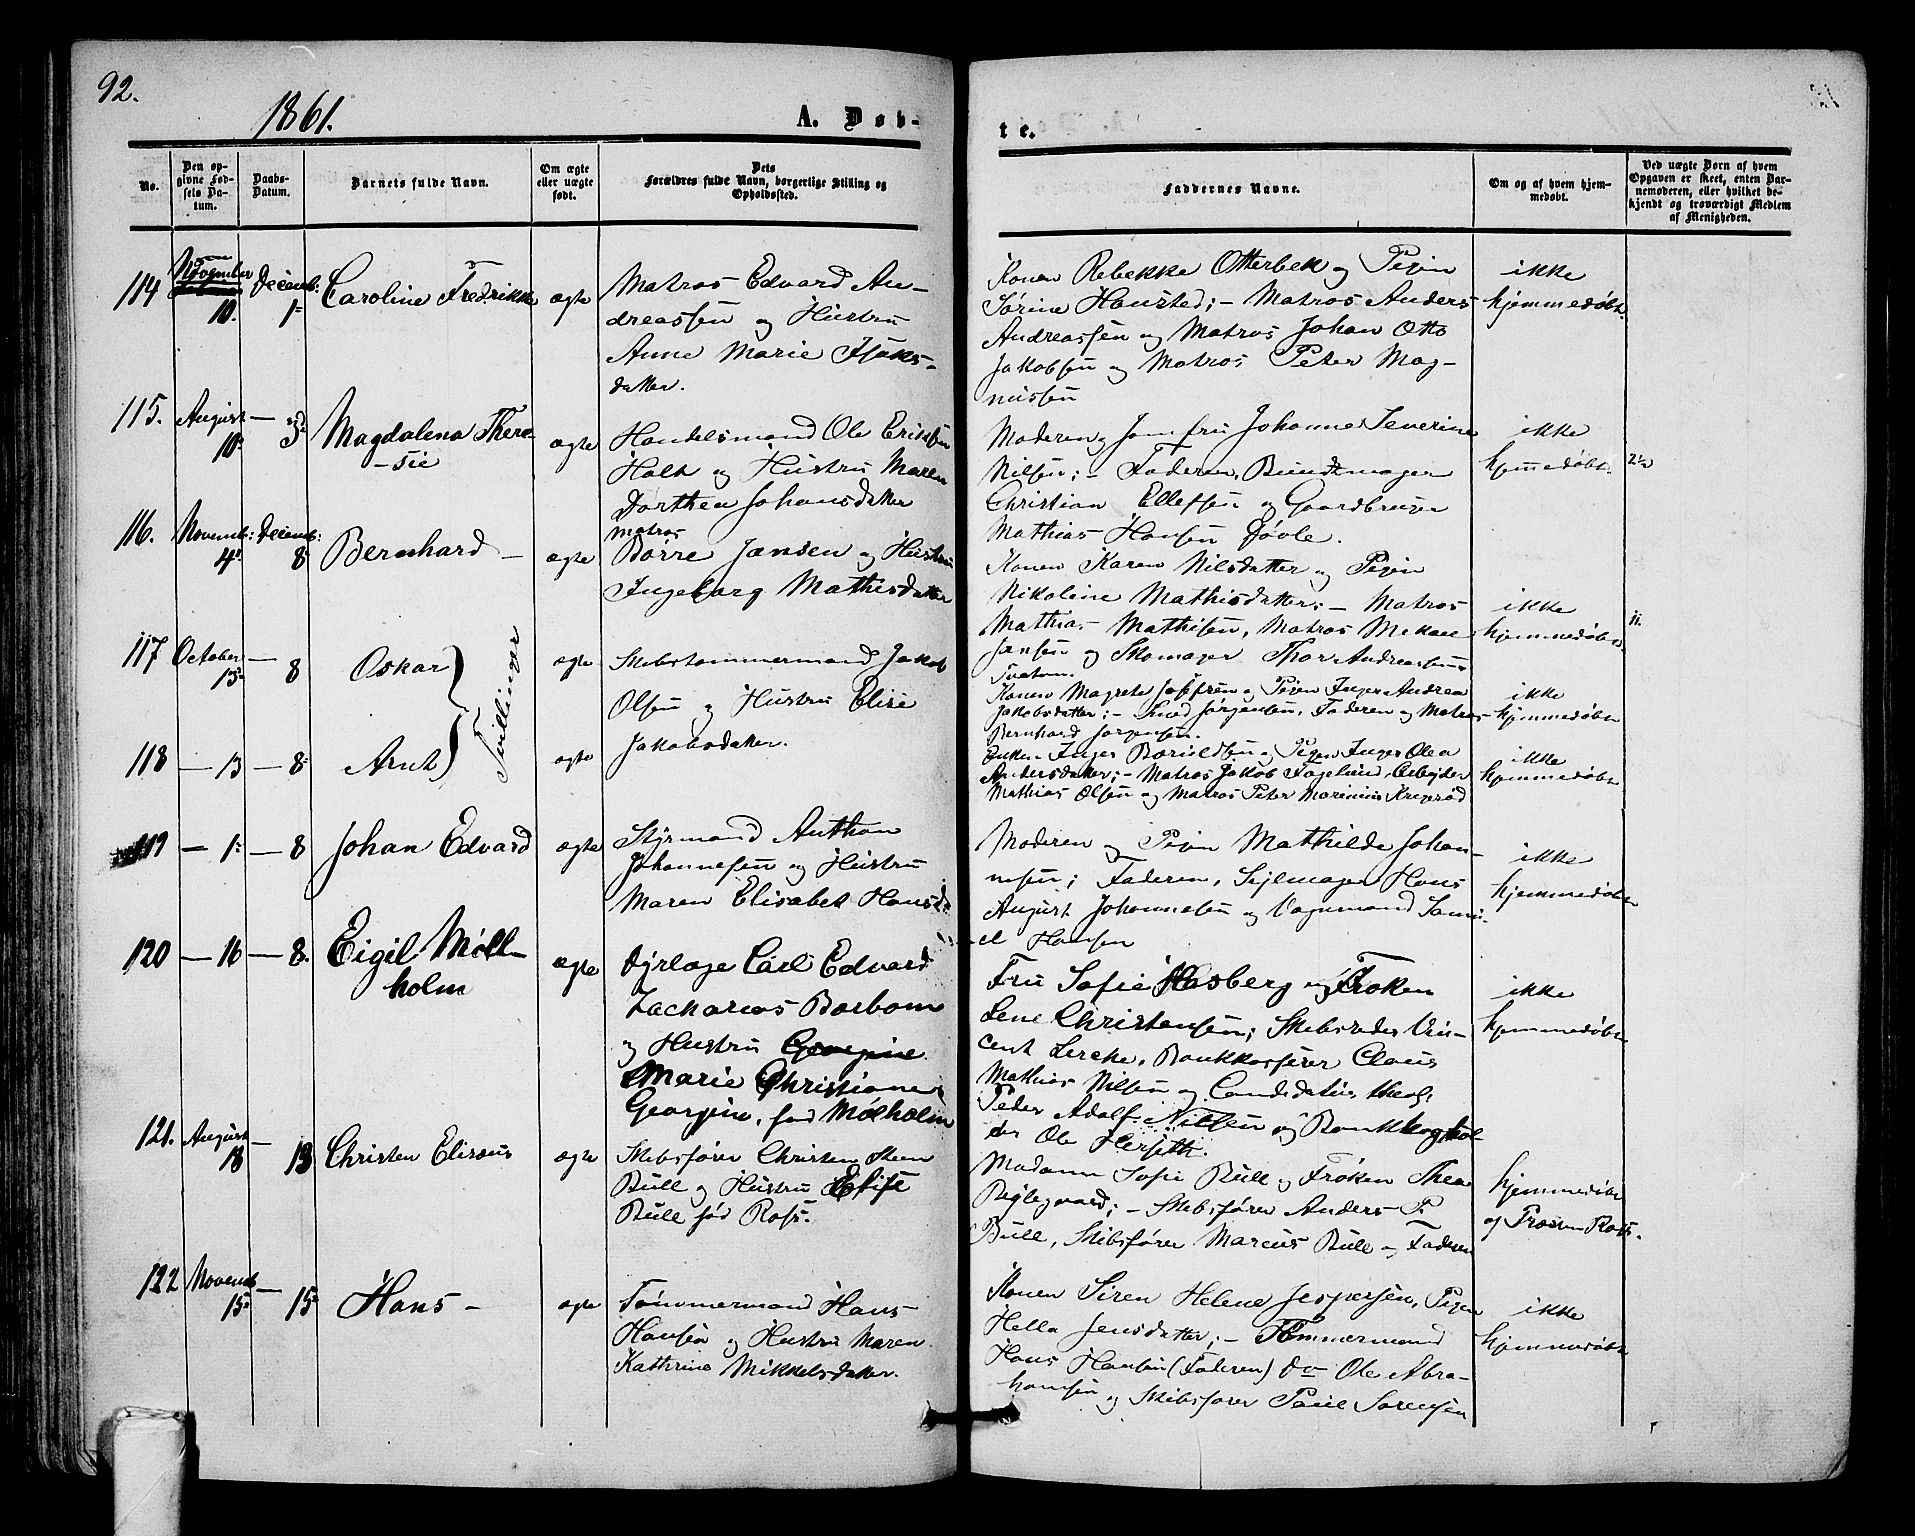 92.
1861.
A. Døb-
te.
No.
Den op-
givne Fød-
sels Da-
tum.
Daabs-
Datum.
Barnets fulde Navn.
Om ægte
eller uægte
født.
Dets
Forældres fulde Navn, borgerlige Stilling og
Opholdssted.
Faddernes Navne.
Om og af hvem hjem-
medøbt.
Ved uægte Børn af hvem
Opgaven er skeet, enten Bar-
nemoderen, eller hvilket be-
kjendt og troværdigt Medlem
af Menigheden.
114 November 10. Decemb: 1- Caroline Fredrikke ægte
Matros Edvard An-
dreassen og Hustru
Anne Marie Isaks-
datter.
Konen Rebekke Otterbek og Pigen
Sørine Hansted; - Matros Anders
Andreassen og Matros Johan Otto
Jakobsen og Matros Peter Mag-
nussen
ikke
hjemmedøbt.
115. August 10. — 3d Magdalena There-
-sie
ægte
Handelsmand Ole Eriksen
Holt og Hustru Maren
Dorthea Johansdatter
Moderen, Jomfru Johanne Severine
Nilsen; - Faderen, Bundtmager
Christian Ellefsen og Gaardbruger
Mathias Hansen Døvle.
ikke
hjemmedøbt.
116. Novemb: 4. Decemb: 8 Bernhard — ægte
Matros
Børre Jansen og Hustru
Ingeborg Mathisdatter
Konen Karen Nilsdatter og Pigen
Nikoline Mathisdatter; - Matros
Mathias Mathisen, Matros
Jansen og Skomager Thor Andreassen
ikke
hjemmedøbt
117 October 13- — 8 Oskar ægte
Tvillinger
Skibstømmermand Jakob
Olsen og Hustru Elise
Jakobsdatter.
Konen Magrete Joffren og Pigen Inger Andrea
Jakobsdatter; - Smed Jørgensen, Faderen og Matros
Bernhard Jørgensen.
ikke
hjemmedøbt
118 — 13 — 8- Arnt ægte
Enken Inger og Pigen Inger Olea
Andersdatter; - Matros Jakob Fagelund, Arbejder
Mathias Olsen og Matros Peter Marinius
ikke
hjemmedøbt
119 — 1- — 8 Johan Edvard ægte
Styrmand Anthon
Johannesen og Hustru
Maren Elisabet Hansd.
Moderen og Pigen Mathilde Johan-
nesen; Faderen, Sejlmager Hans
August Johannesen og Vognmand Samu-
el Hansen
ikke
hjemmedøbt
120 — 16 — 8. Eigil Møll-
holm
ægte
Dyrlæge Carl Edvard
Zacharias Barbom
og Hustru Georgine
Marie Christiane
Georgine, fød Mølholm
Fru Sofie Hasberg og Frøken
Lene Christensen; Skibsreder Vin-
cent Lerche, Bankkasserer Claus
Mathias Nilsen og Candidatus theol.
Peder Adolf Nilsen og Bankboghol-
der Ole Herseth.
ikke
hjemmedøbt
121. August 18 — 13 Christen Elisæus ægte
Skibsfører Christen Steen
Bull og Hustru Elise
Bull født Ross.
Madam Sofie Bull og Frøken Thea
Røglegaard; - Skibsfører Anders P.
Bull, Skibsfører Marcus Bull og Faderen
hjemmedøbt
122 Novemb 15- — 15- Hans — ægte
Tømmermand Hans
Hansen og Hustru Maren
Kathrine Mikkelsdatter.
Konen Siren Helene Jespersen, Pigen
Hella Jensdatter; - Tømmermand
Hans Hansen (Faderen) do Ole Abra-
hamsen og Skibsfører Paul Sørensen
ikke
hjemmedøbt